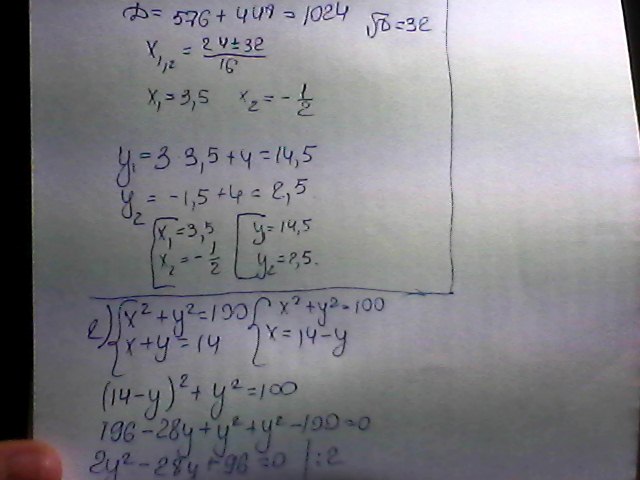 D = 576 + 448 = 1024 √D = 32
x₁,₂ = (24 ± 32)/16
x₁ = 3,5 x₂ = -1/2
y₁ = 3 3,5 + 4 = 14,5
y₂ = -1,5 + 4 = 2,5
[x₁ = 3,5 [y = 14,5
x₂ = -1/2 y₂ = 2,5.
2) {x² + y² = 100 {x² + y² = 100
x + y = 14 x = 14 - y
(14 - y)² + y² = 100
196 - 28y + y² + y² - 100 = 0
2y² - 28y + 96 = 0 | : 2